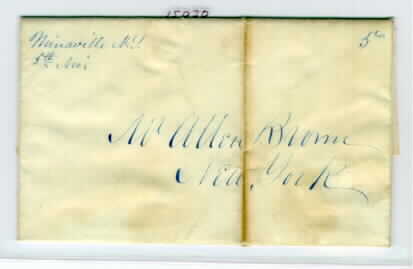 15030
Minaville N.Y.
5th
5cts
Mr Allen Brown
New York